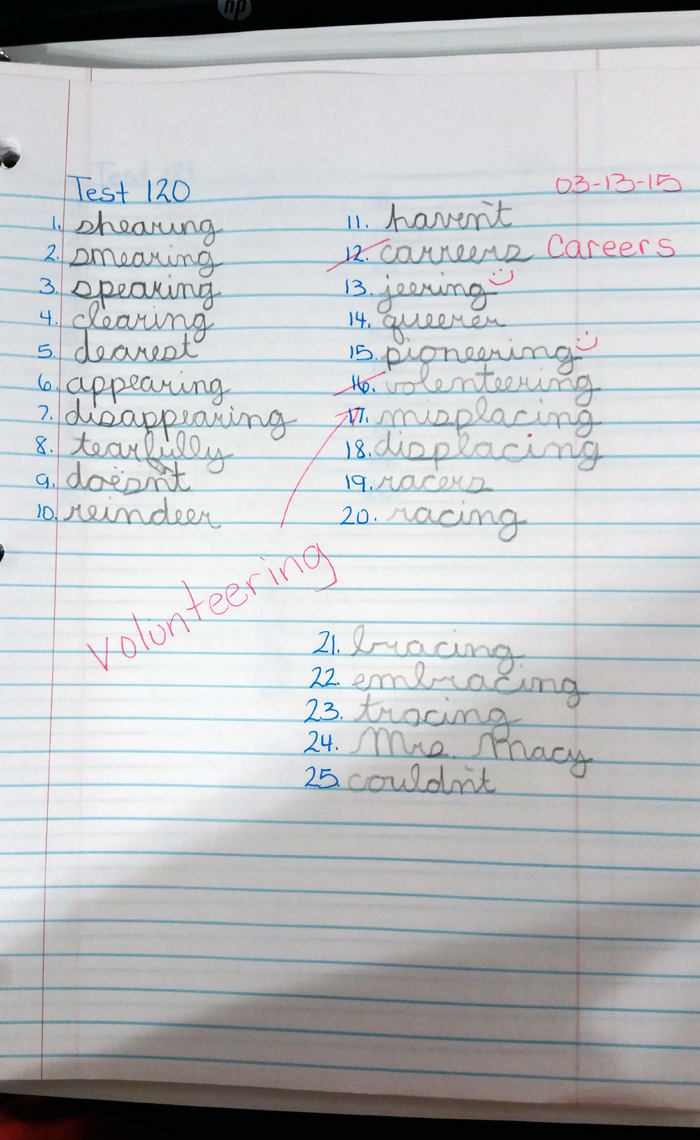 hp
Test 120
03-13-15
1. shearing
2. smearing
3. spearing
4. clearing
5. dearest
6. appearing
7. disappearing
8. tearfully
9. doesn't
10. reindeer
11. haven't
12. carreers Careers
13. jeering
14. queerer
15. pioneering
16. volenteering
17. misplacing
18. displacing
19. racers
20. racing
volunteering
21. bracing
22. embracing
23. tracing
24. Mrs. Macy
25. couldn't